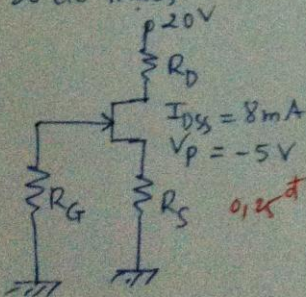 20V
R_D
I_DSS = 8mA
V_P = -5 V
R_G
R_S
0,25đ